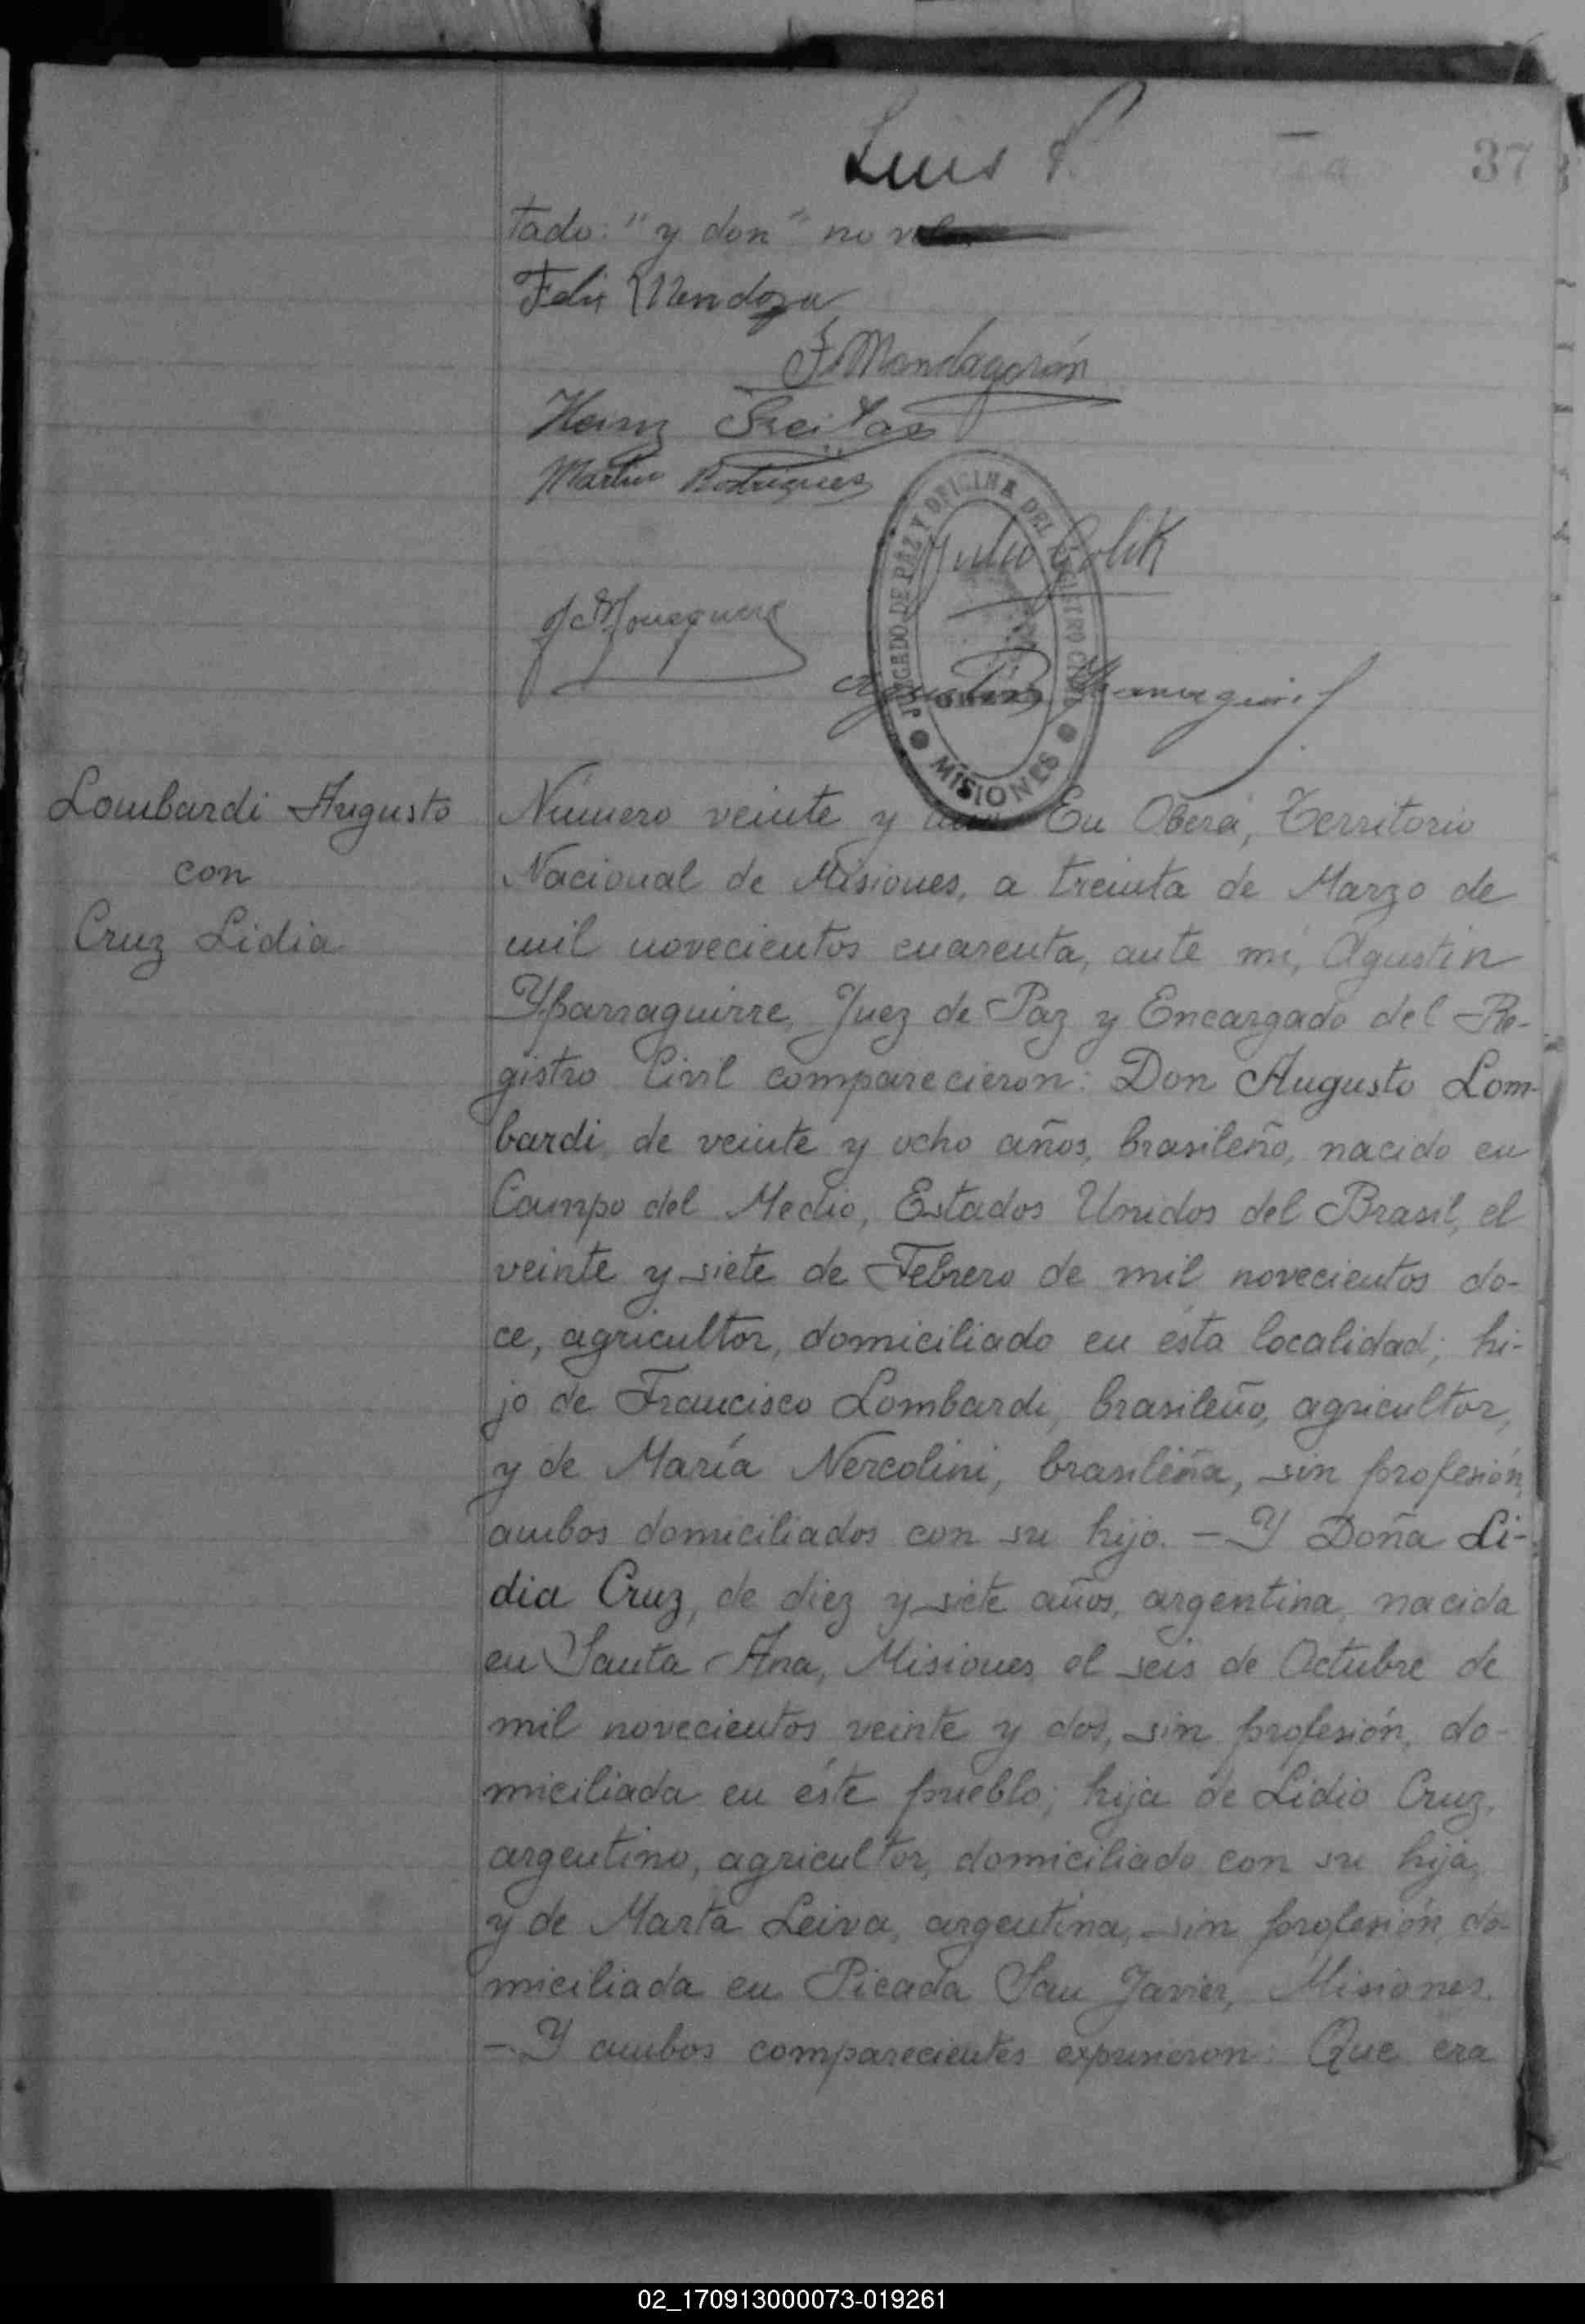 37
Luis P.
tado: "y don" no vale
Felix Mendoza
F. Mondagorón
Martin Rodriguez
Julio Golik
JUZGADO DE PAZ Y OFICINA DEL REGISTRO CIVIL
OBERA
MISIONES
Lombardi Augusto
con
Cruz Lidia
Número veinte y En Oberá, Territorio
Nacional de Misiones, a treinta de Marzo de
mil novecientos cuarenta, ante mí, Agustín
Yparraguirre, Juez de Paz y Encargado del Re-
gistro Civil comparecieron: Don Augusto Lom-
bardi, de veinte y ocho años, brasileño, nacido en
Campo del Medio, Estados Unidos del Brasil, el
veinte y siete de Febrero de mil novecientos do-
ce, agricultor, domiciliado en ésta localidad; hi-
jo de Francisco Lombardi, brasileño, agricultor,
y de María Nercolini, brasileña, sin profesión,
ambos domiciliados con su hijo. - Y Doña Li-
dia Cruz, de diez y siete años, argentina, nacida
en Santa Ana, Misiones el seis de Octubre de
mil novecientos veinte y dos, sin profesión, do-
miciliada en éste pueblo; hija de Lidio Cruz,
argentino, agricultor, domiciliado con su hija,
y de Marta Leiva, argentina, sin profesión, do-
miciliada en Picada San Javier, Misiones.
- Y ambos comparecientes expusieron: Que era
02_170913000073-019261